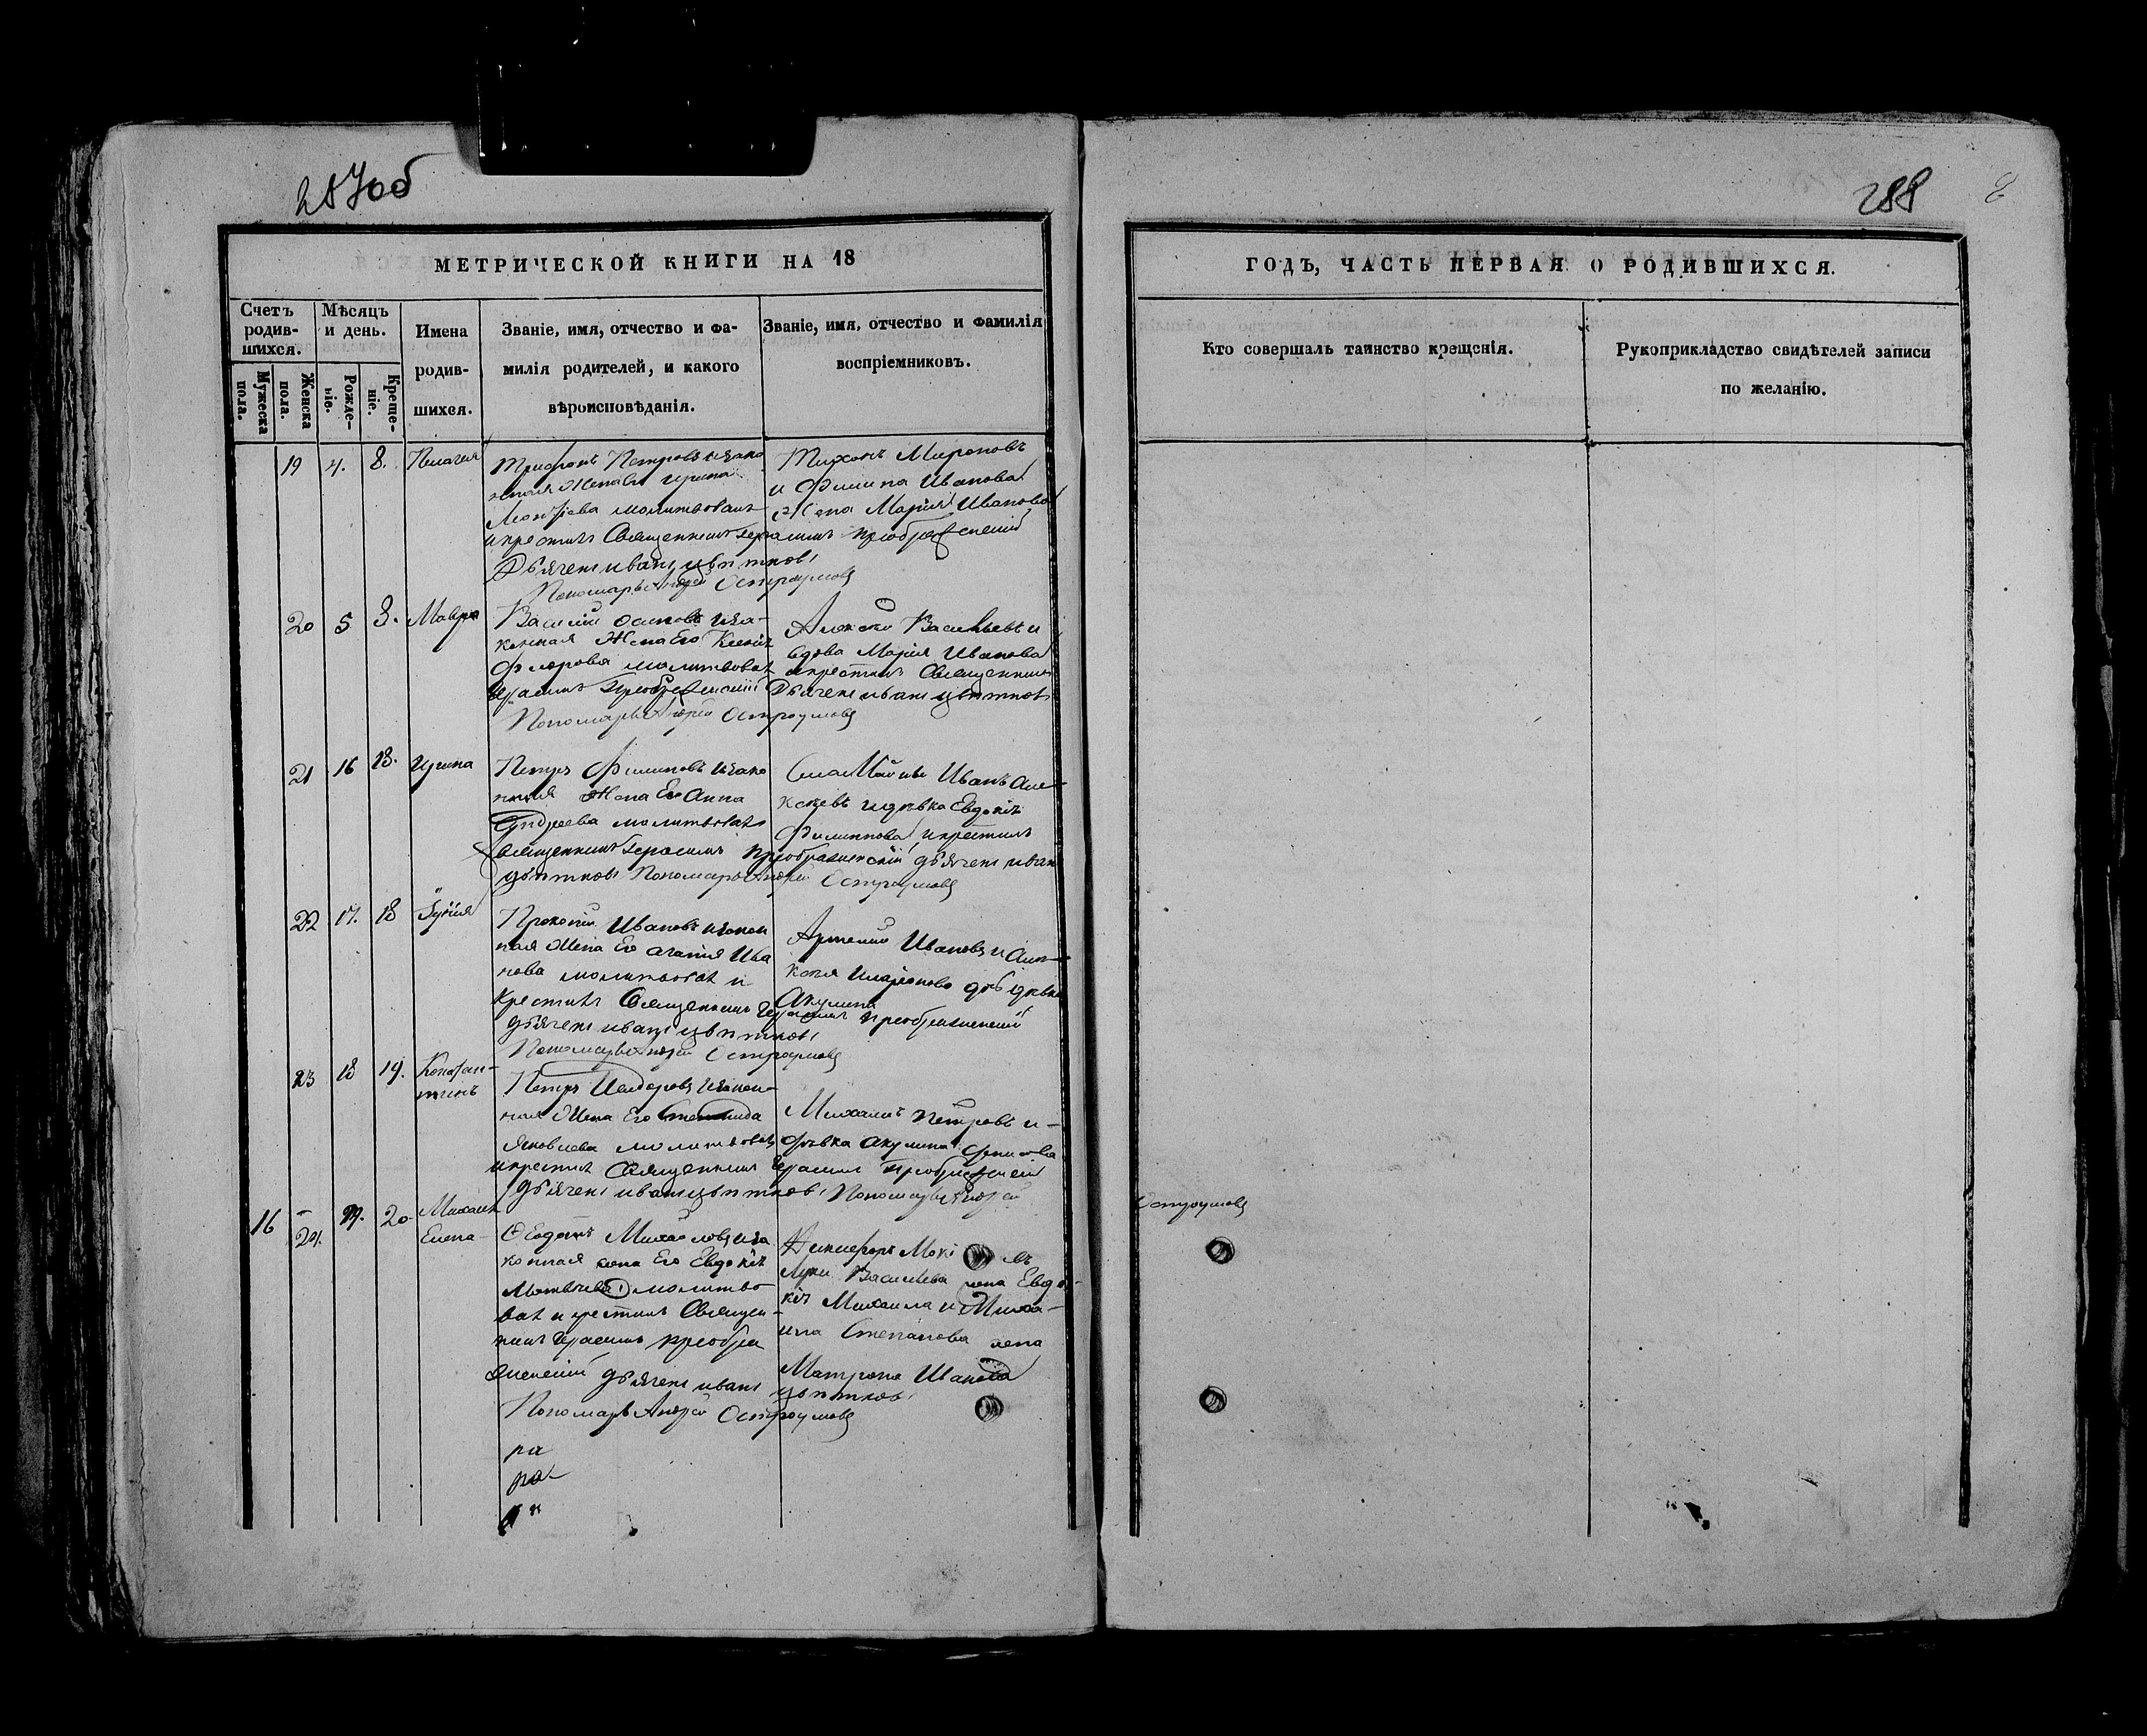 287об
288
МЕТРИЧЕСКОЙ КНИГИ НА 18
Счетъ родив-шихся.
Мѣсяцъ и день.
Имена родив-шихся.
Званіе, имя, отчество и фа-
милія родителей, и какого
вѣроисповѣданія.
Званіе, имя, отчество и фамилія
воспріемниковъ.
Мужеска пола.
Женска пола.
Рожде-ніе.
Креще-ніе.
19 4. 8. Пелагея
Трифонъ Петровъ изако
нная Жена Ево Ирина
молитвовалъ
и крестилъ Священникъ Герасимъ Преображенский
Дьячекъ иванъ цвѣтковъ
Пономарь Андрей Остроумовъ
Тихонъ Мироновъ
и Филипа Иванова
Жена Марія Иванова
20 5 8. Мавра
Василий Осиповъ иза-
конная Жена Ево Ксенія
молитвовалъ
Герасимъ Преображенский Дьячекъ иванъ цвѣтковъ
Пономарь Андрей Остроумовъ
Алексей Васильевъ и
вдова Марія Иванова
икрестилъ Священникъ
21 16 18. Ирина
Петръ Филиповъ изако
нная Жена Ево Анна
Андреева молитвовалъ
Священникъ Герасимъ Преображенский дьячекъ иванъ
цвѣтковъ Пономарь Андрей Остроумовъ
Иванъ Але-
ксеевъ идѣвка Евдокія
Филиппова икрестилъ
22 17. 18
Прокопий Ивановъ изакон
ная Жена Ево Агапія Ива
нова молитвовалъ и
Крестилъ Священникъ Герасимъ Преображенский
дьячекъ иванъ цвѣтковъ
Пономарь Андрей Остроумовъ
Ивановъ и Але-
Акулина
23 18 19. Констан-
тинъ
Петръ изакон-
ная Жена Ево Степанида
Яковлева молитвовалъ
икрестилъ Священникъ Герасимъ Преображенский
дьячекъ иванъ цвѣтковъ Пономарь Андрей
Михаилъ Петровъ и-
дѣвка Акулина
16 24. 19. 20 Михаилъ
Елена
Ѳеодотъ Михайловъ иза
конная жена Ево Евдокія
Матвѣева молитво
валъ и крестилъ Священ-
никъ Герасимъ Преобра
женский дьячекъ иванъ цвѣтковъ
Пономарь Андрей Остроумовъ
Никифоръ
Луки Васильева жена Евдо-
кія Михаила и Миха-
ила Степанова жена
Матрона Иванова
ра
ра
ГОДЪ, ЧАСТЬ ПЕРВАЯ О РОДИВШИХСЯ.
Кто совершалъ таинство крещенія.
Рукоприкладство свидѣтелей записи
по желанію.
Остроумовъ